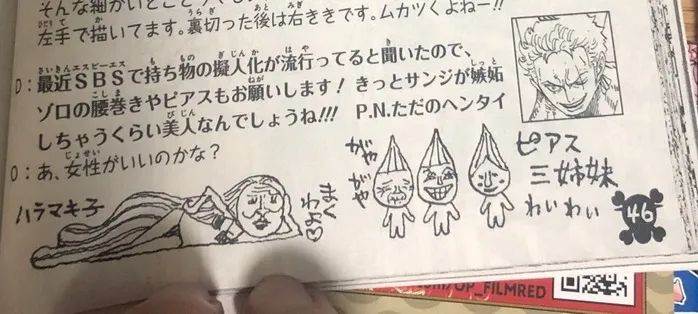 そんな細かいとこ
左手で描いてます。裏切った後は右ききです。ムカつくよねー!!
D：最近SBSで持ち物の擬人化が流行ってると聞いたので、
ゾロの腰巻きやピアスもお願いします！きっとサンジが嫉妬
しちゃうくらい美人なんでしょうね!!! P.N.ただのヘンタイ
O：あ、女性がいいのかな？
ハラマキ子
まくわよ♡
がやがや
ピアス
三姉妹
わいわい
46
com/OP_FILMRED